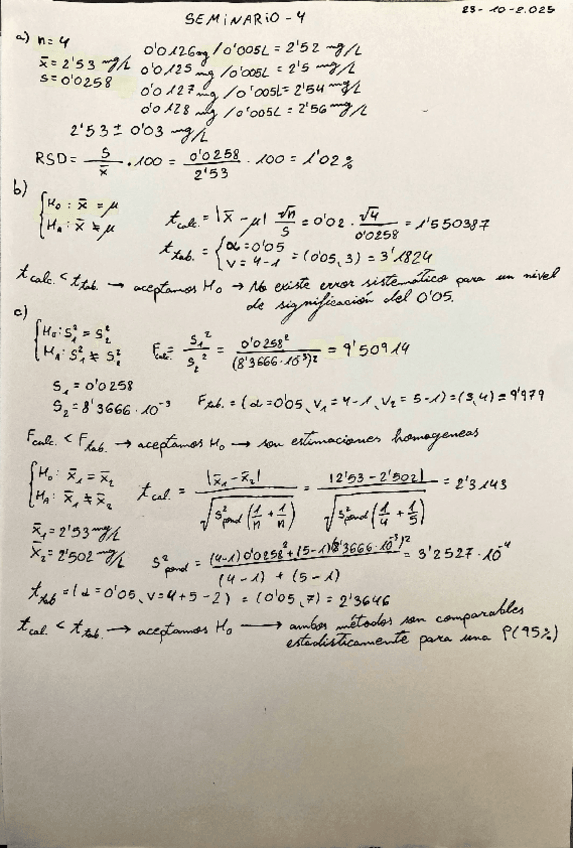 SEMINARIO - 4
23-10-2.025
a) n = 4
x̄ = 2'53 mg/L
s = 0'0258
0'0126mg / 0'005L = 2'52 mg/L
0'0125 mg / 0'005L = 2'5 mg/L
0'0127 mg / 0'005L = 2'54 mg/L
0'0128 mg / 0'005L = 2'56 mg/L
2'53 ± 0'03 mg/L
RSD = s/x̄ · 100 = 0'0258/2'53 · 100 = 1'02 %
b)
{H₀: x̄ = μ
Hₐ: x̄ ≠ μ
t calc. = |x̄ - μ| √n/s = 0'02 · √4/0'0258 = 1'550387
t tab. = {α = 0'05
ν = 4-1 = (0'05, 3) = 3'1824
t calc. < t tab. → aceptamos H₀ → No existe error sistemático para un nivel
de significación del 0'05.
c)
{H₀: S₁² = S₂²
Hₐ: S₁² ≠ S₂²
F calc. = S₁²/S₂² = 0'0258²/(8'3666·10⁻³)² = 9'50914
S₁ = 0'0258
S₂ = 8'3666·10⁻³
F tab. = (α = 0'05, ν₁ = 4-1, ν₂ = 5-1) = (3,4) = 9'979
F calc. < F tab. → aceptamos H₀ → son estimaciones homogeneas
{H₀: x̄₁ = x̄₂
Hₐ: x̄₁ ≠ x̄₂
t cal. = |x̄₁ - x̄₂| / √(S² pond (1/n + 1/n)) = |2'53 - 2'502| / √(S² pond (1/4 + 1/5)) = 2'3143
x̄₁ = 2'53 mg/L
x̄₂ = 2'502 mg/L
S² pond = (4-1) 0'0258² + (5-1)(8'3666·10⁻³)² / (4-1) + (5-1) = 3'2527·10⁻⁴
t tab = (α = 0'05, ν = 4+5-2) = (0'05, 7) = 2'3646
t cal. < t tab. → aceptamos H₀ → ambos métodos son comparables
estadísticamente para una P(95%)